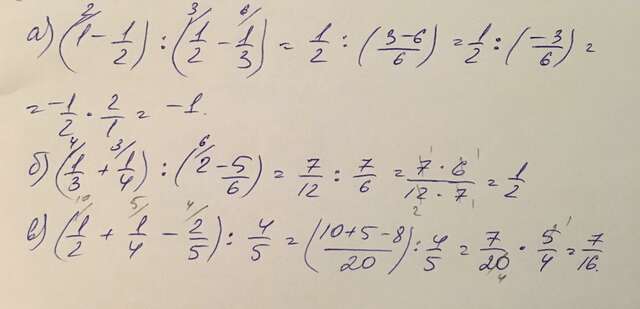 а) (1 - 1/2) : (1/2 - 1/3) = 1/2 : (3-6/6) = 1/2 : (-3/6) =
= -1/2 · 2/1 = -1.
б) (1/3 + 1/4) : (2 - 5/6) = 7/12 : 7/6 = 7·6/12·7 = 1/2
в) (1/2 + 1/4 - 2/5) : 4/5 = (10+5-8/20) : 4/5 = 7/20 · 5/4 = 7/16.